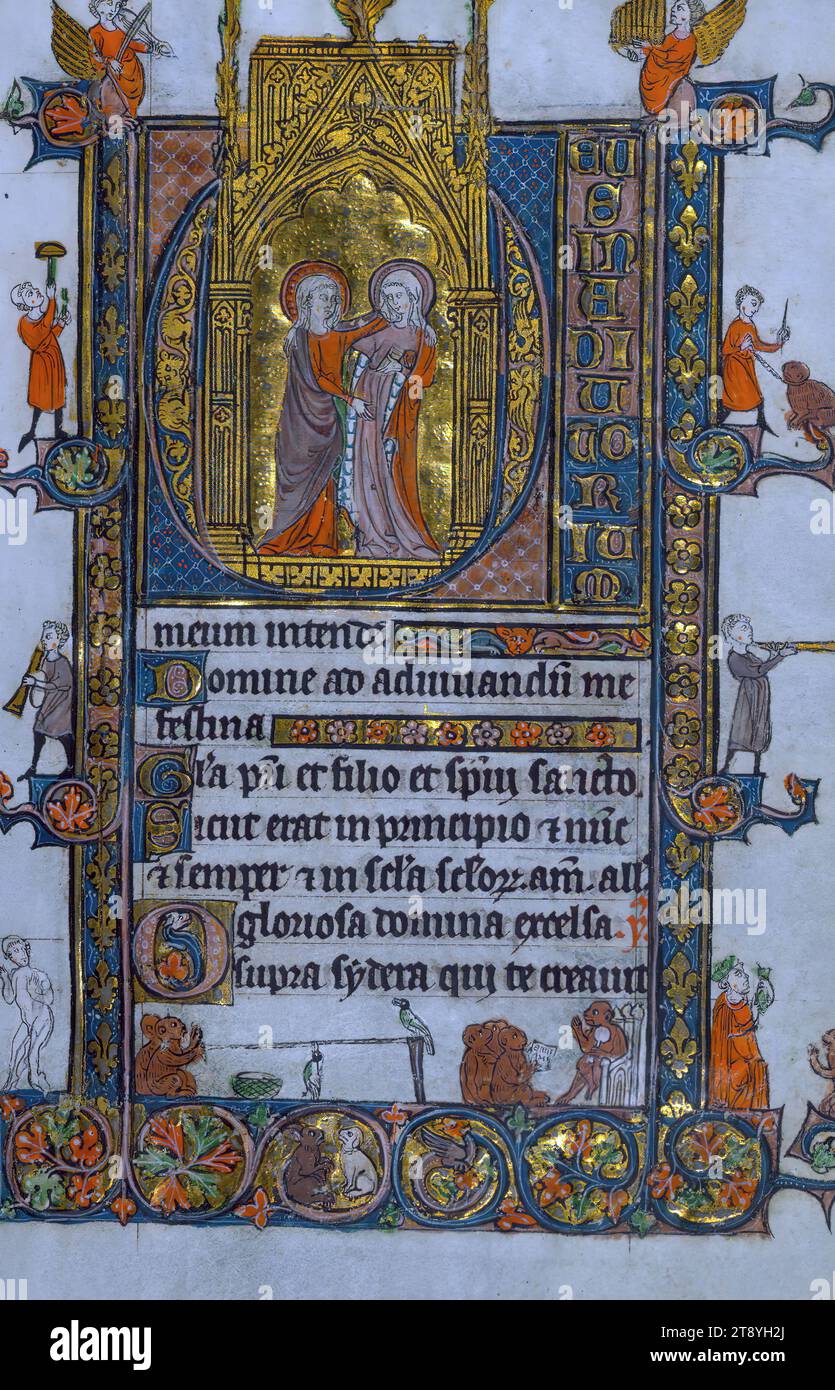 D
eu
S
IN
AD
IU
TO
R
IU
M
meum intende
Domine ad adiuuandū me
festina
Gl'a pr̄i et filio et sp̄iū sancto.
Sicut erat in principio ⁊ nūc
⁊ semper ⁊ in sclā sclōꝝ. am̄. all'
O gloriosa domina excelsa.
supra sydera qui te creauit
alamy
Image ID: 2T8YH2J
www.alamy.com